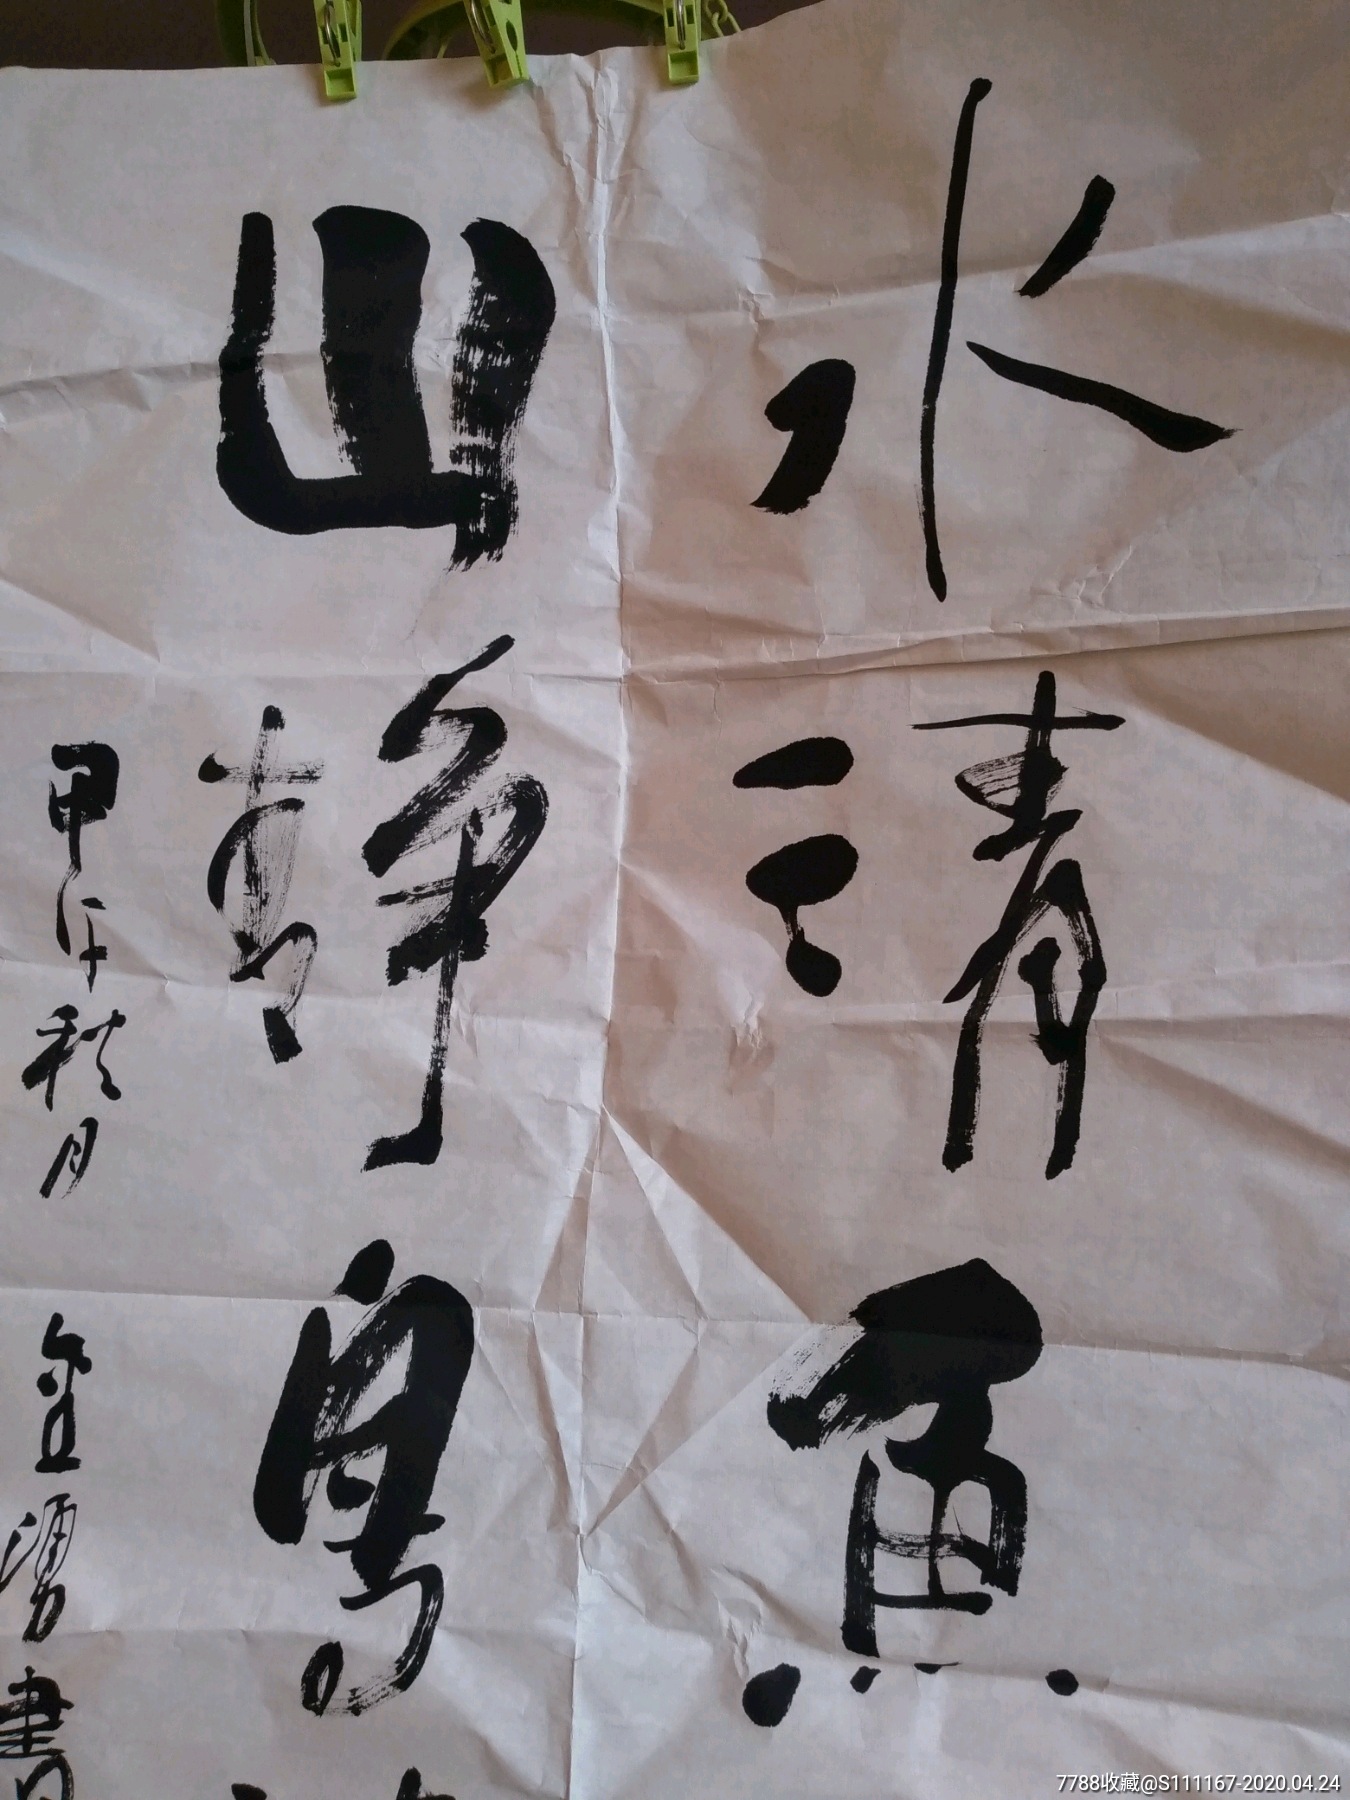 水清魚
山静鳥
甲午秋月 金湧書
7788收藏@S111167-2020.04.24